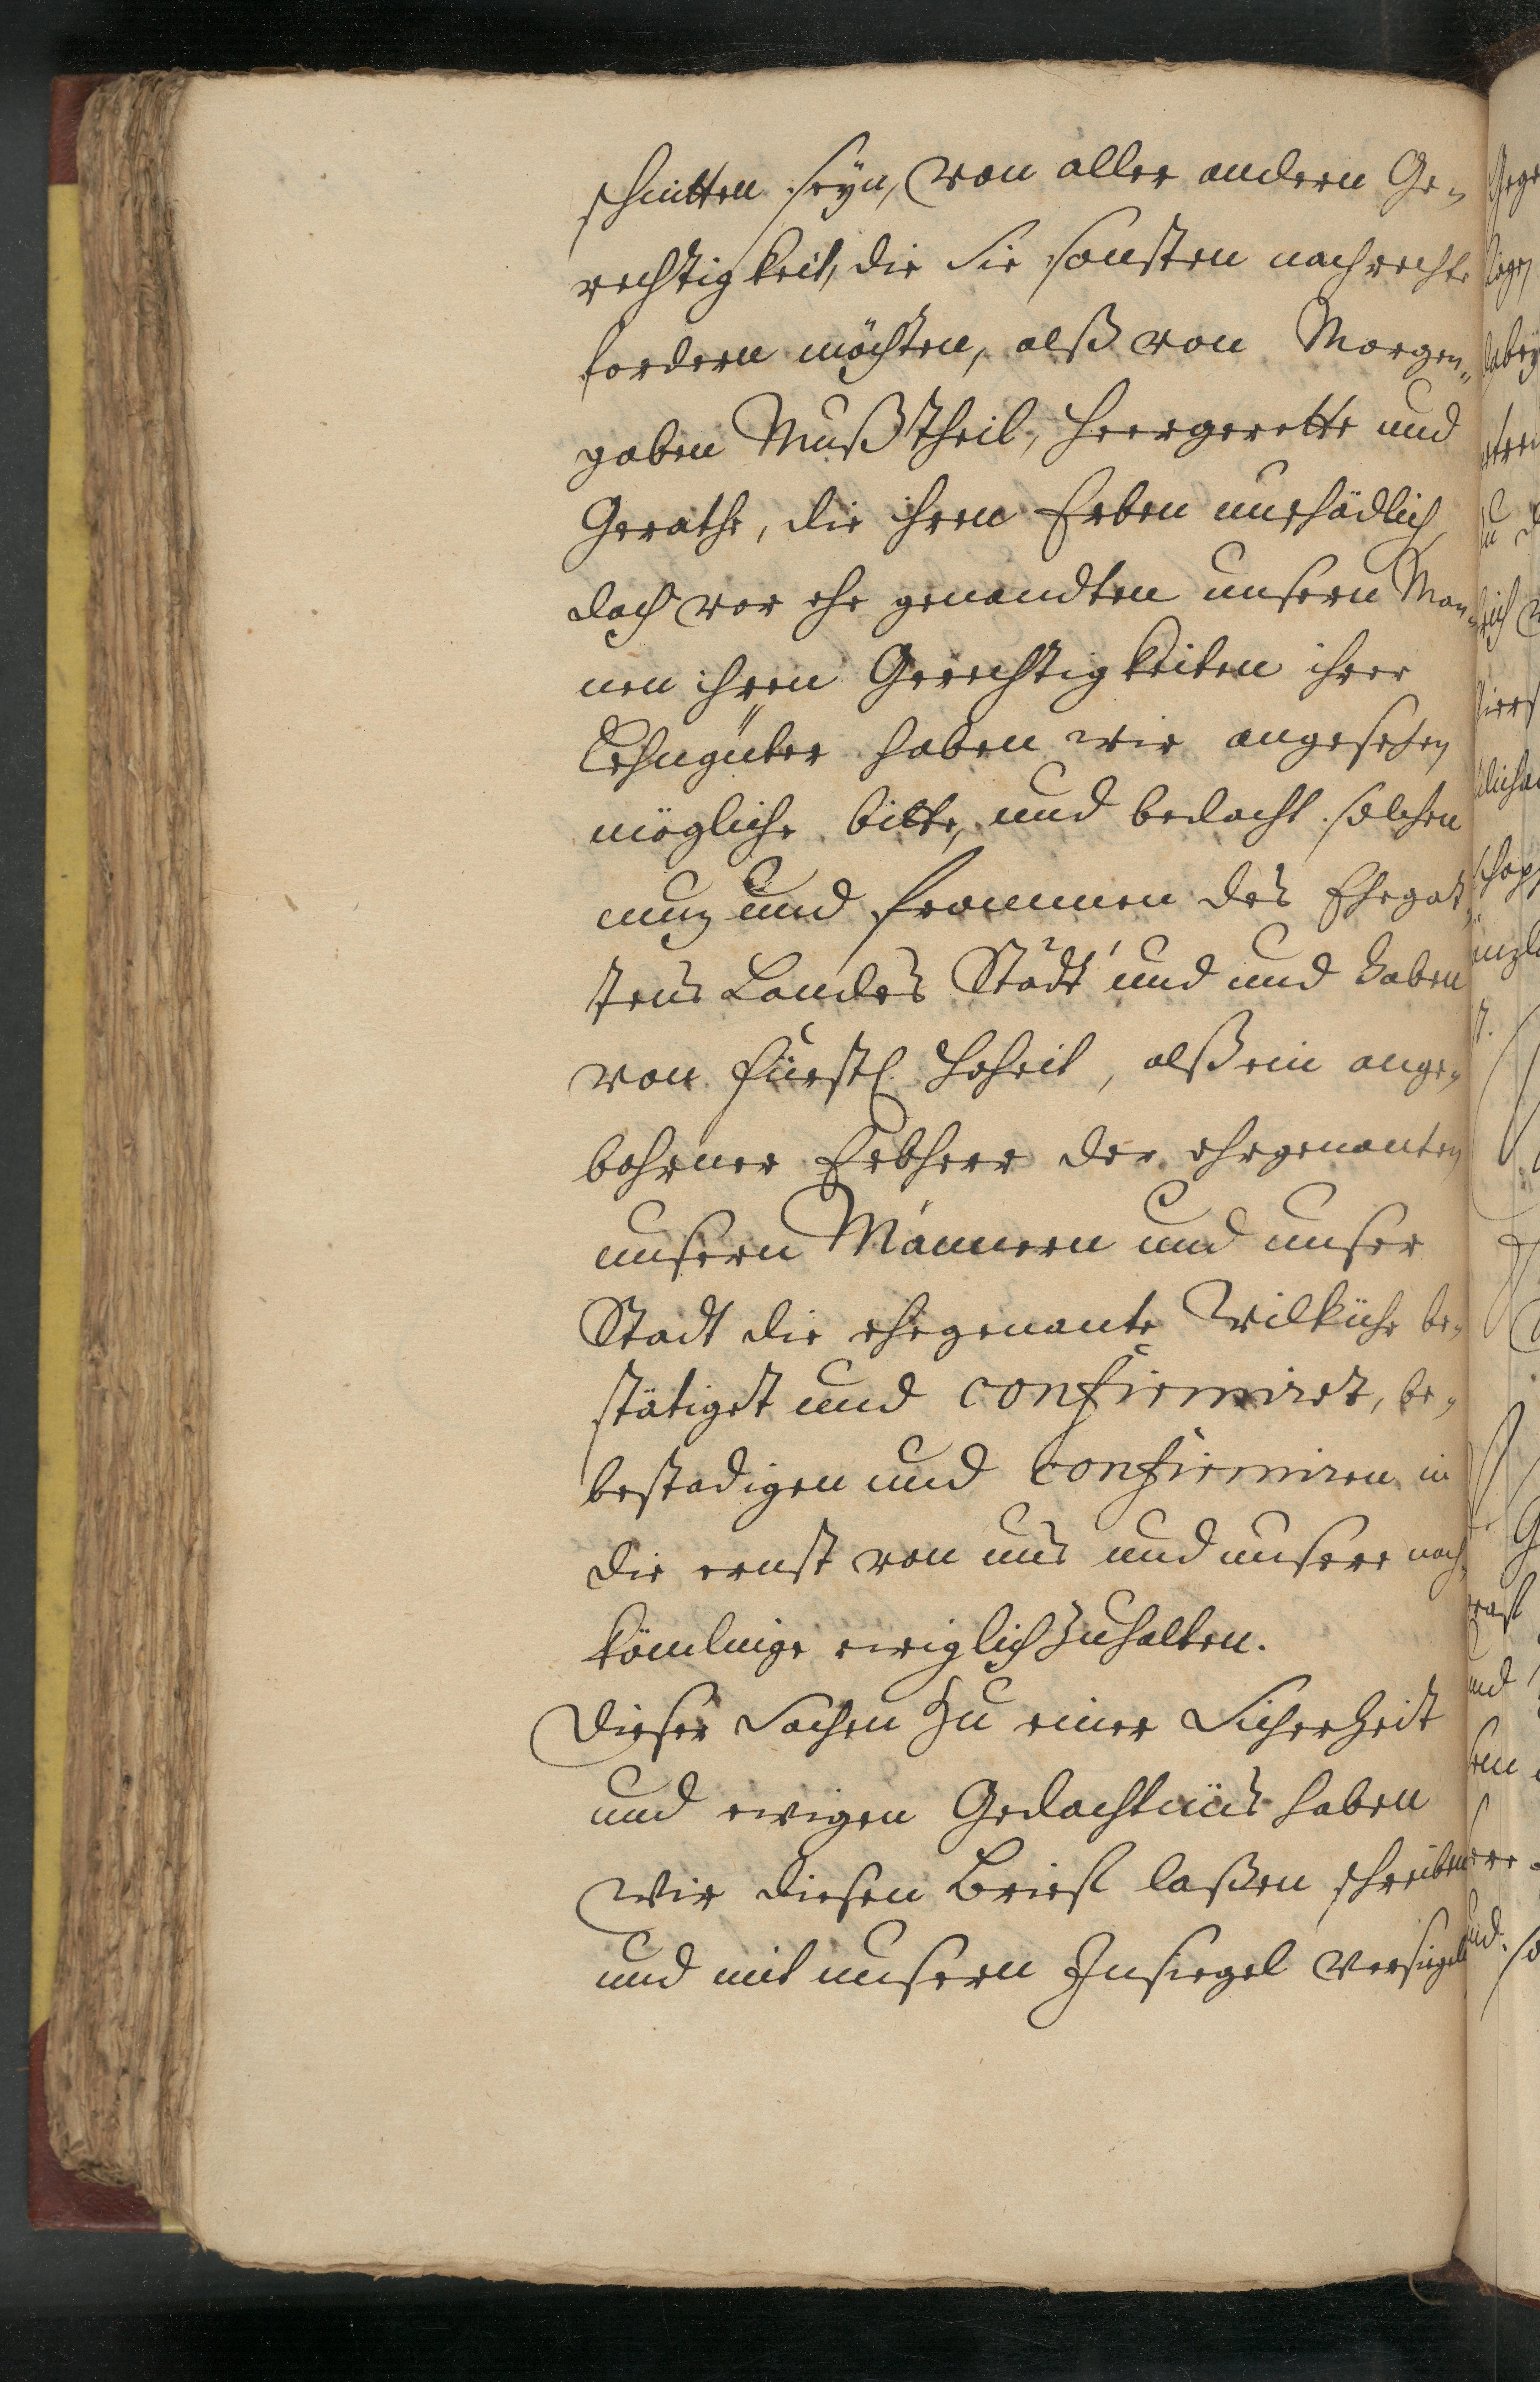 schnitten seÿn, von aller andern Ge-
rechtigkeit, die sie sonsten nach rechte
fordern möchten, alß von Morgen-
gaben Mußtheil, Heergerette und
Gerathe, die ihren Erben unschädlich,
doch vor ehe genandten unsern Man-
nen ihren Gerechtigkeiten ihrer
Lehngüter haben wir angesehen
mögliche bitte, und bedacht solchen
nuz und frommen des Ehegat-
tens Landes Städt und und haben
von fürstl. Hoheit, alß ein ange-
bohrner Erbherr der ehegenanten
unsern Männern und unser
Stadt die ehegenante Wilkühr be-
stätiget und confirmiret, be-
bestadigen und Confirmiren in
die ernst von uns und unsere nach-
kömlinge ewiglich zuhalten.
Dieser Sachen zu einer Sicherheit
und ewigen Gedachtnüs haben
wir diesen Brieff laßen schreiben
und mit unsern Insiegel versiegeln